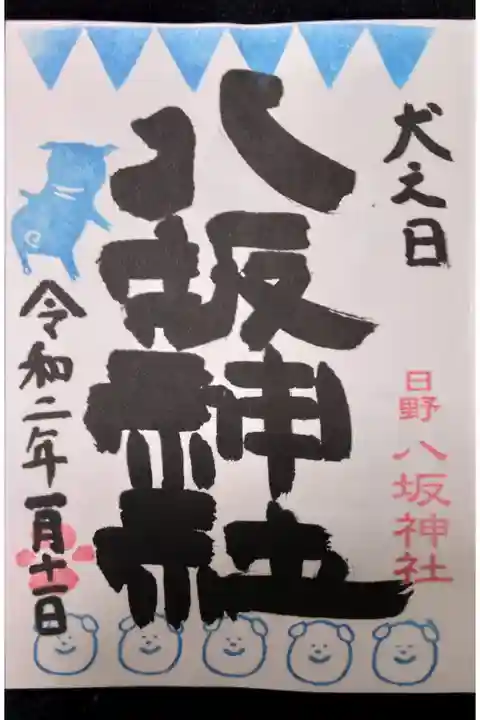 犬之日
日野 八坂神社
八坂神社
令和二年一月十一日